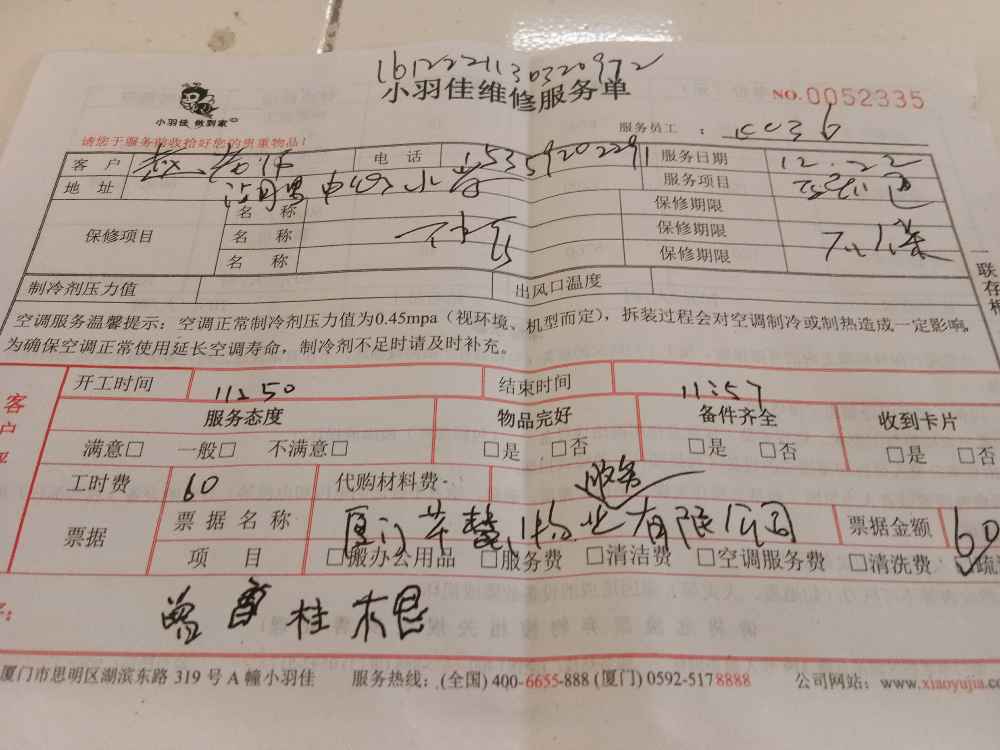 1612221130320972
小羽佳维修服务单
NO.0052335
小羽佳 做到家
请您于服务前收拾好您的贵重物品!
服务员工 :
客 户 电 话 15359202291 服务日期 12.22
地 址 服务项目
保修项目 名 称 保修期限
名 称 保修期限
名 称 保修期限
制冷剂压力值 出风口温度
空调服务温馨提示:空调正常制冷剂压力值为0.45mpa(视环境、机型而定),拆装过程会对空调制冷或制热造成一定影响,
为确保空调正常使用延长空调寿命,制冷剂不足时请及时补充。
一联存根
客户
开工时间 11:50 结束时间 11:57
服务态度 物品完好 备件齐全 收到卡片
满意□ 一般□ 不满意□ □是 □否 □是 □否 □是 □否
工时费 60 代购材料费
服务
票据 票据名称 厦门 物业有限公司 票据金额 60
项 目 □搬办公用品 □服务费 □清洁费 □空调服务费 □清洗费 疏
曾 桂根
厦门市思明区湖滨东路 319 号 A 幢小羽佳 服务热线:(全国) 400-6655-888 (厦门) 0592-5178888 公司网站:www.xiaoyujia.co